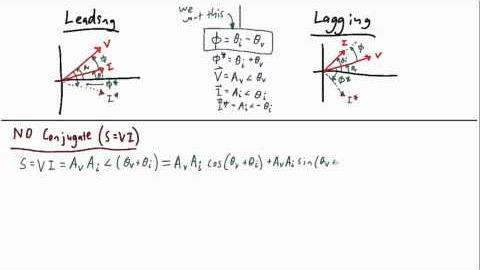 Leading
V
I
ϕ
I*
we want this
ϕ = θi - θv
ϕ* = θi + θv
V = Av ∠ θv
I = Ai ∠ θi
I* = Ai ∠ -θi
Lagging
I
ϕ
V
ϕ*
I*
NO Conjugate (S=VI)
S = VI = Av Ai ∠ (θv + θi) = Av Ai cos(θv + θi) + Av Ai sin(θv +